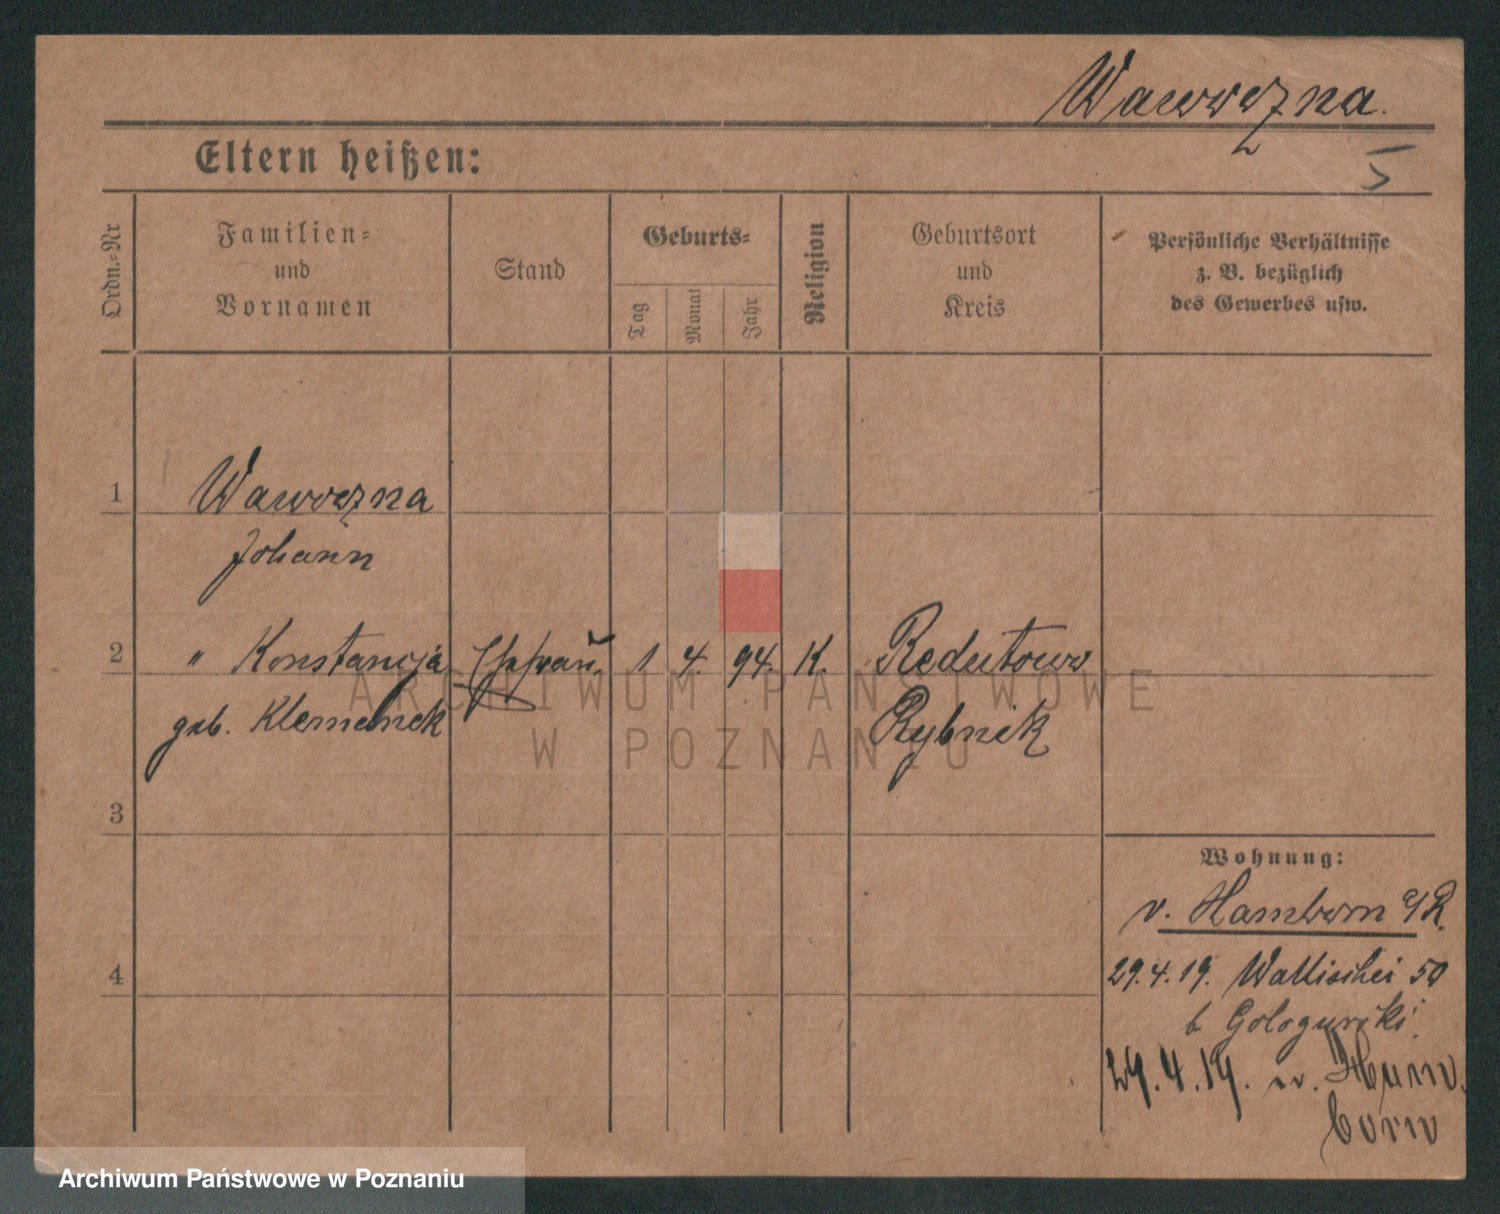 Wawrzna.
5
Eltern heißen:
Ordn.=Nr
Familien=
und
Vornamen
Stand
Geburts=
Tag
Monat
Jahr
Religion
Geburtsort
und
Kreis
Persönliche Verhältnisse
z. B. bezüglich
des Gewerbes usw.
1
Johann
2 " Konstancja Ehefrau 1 4. 94. K. Redutowo
geb. Klemenek Rybnik
ARCHIWUM PAŃSTWOWE
W POZNANIU
3
Wohnung:
v. Hamborn a/R.
4
29.4.19. Wallischei 50
b Gologurski
29.4.19. n. Ham
born
Archiwum Państwowe w Poznaniu